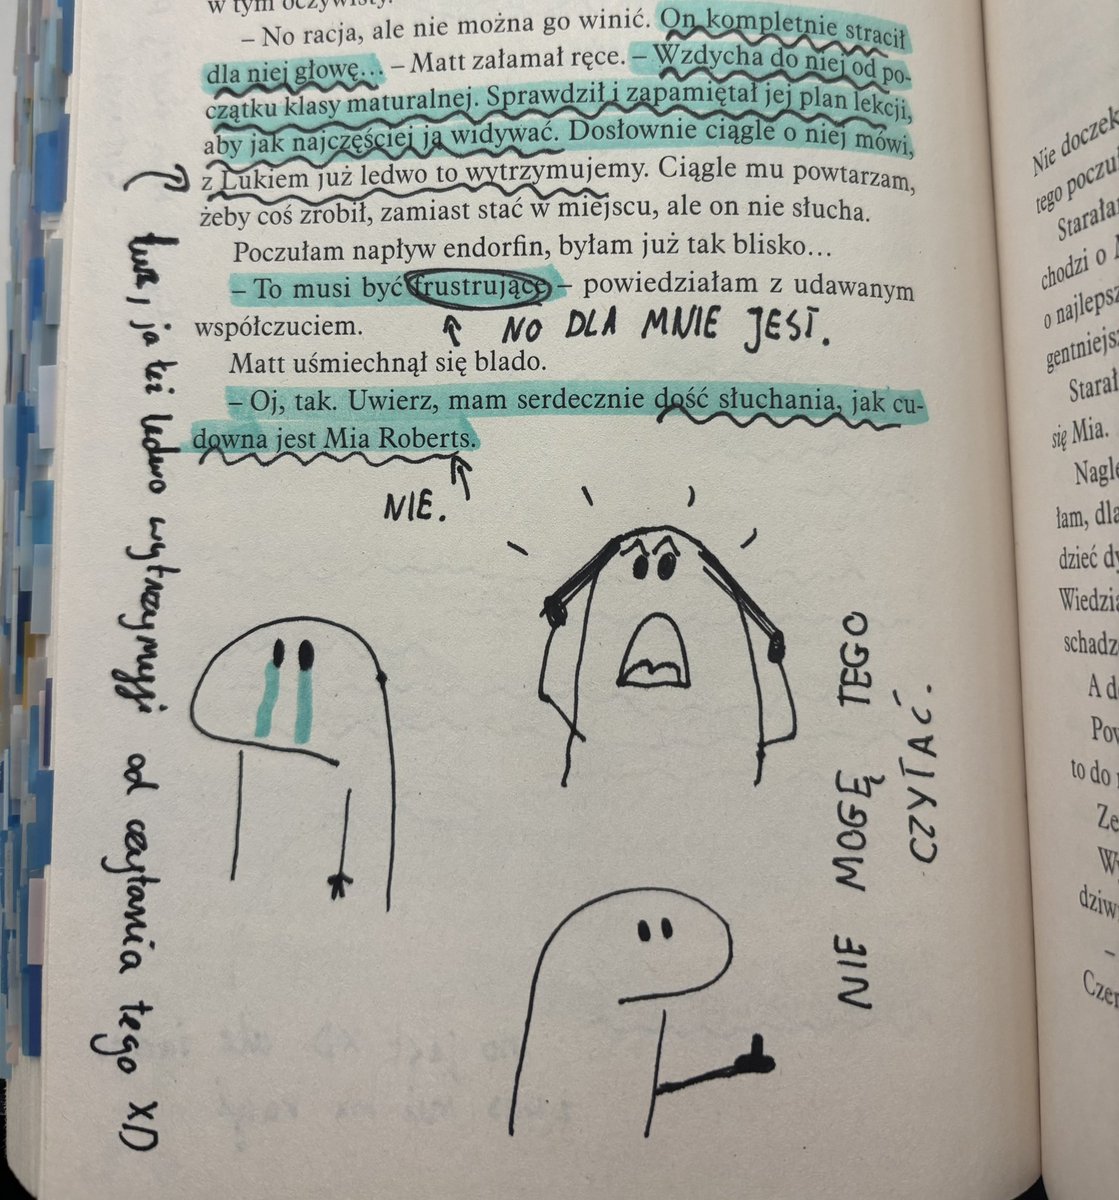 w tym oczywisty.
– No racja, ale nie można go winić. On kompletnie stracił
dla niej głowę... – Matt załamał ręce. – Wzdycha do niej od po-
czątku klasy maturalnej. Sprawdził i zapamiętał jej plan lekcji,
aby jak najczęściej ją widywać. Dosłownie ciągle o niej mówi,
z Lukiem już ledwo to wytrzymujemy. Ciągle mu powtarzam,
żeby coś zrobił, zamiast stać w miejscu, ale on nie słucha.
Poczułam napływ endorfin, byłam już tak blisko...
– To musi być frustrujące – powiedziałam z udawanym
współczuciem.
NO DLA MNIE JEST.
Matt uśmiechnął się blado.
– Oj, tak. Uwierz, mam serdecznie dość słuchania, jak cu-
downa jest Mia Roberts.
NIE.
ja też ledwo wytrzymuję od czytania tego XD
NIE MOGĘ TEGO
CZYTAĆ.
Nie doczek
tego poczu
Starała
chodzi o
o najlepsz
gentniejsz
Starał
się Mia.
Nagle
łam, dla
dzieć dy
Wiedzia
schadz
A d
Pow
to do
Ze
Wy
dziw
–
Czer